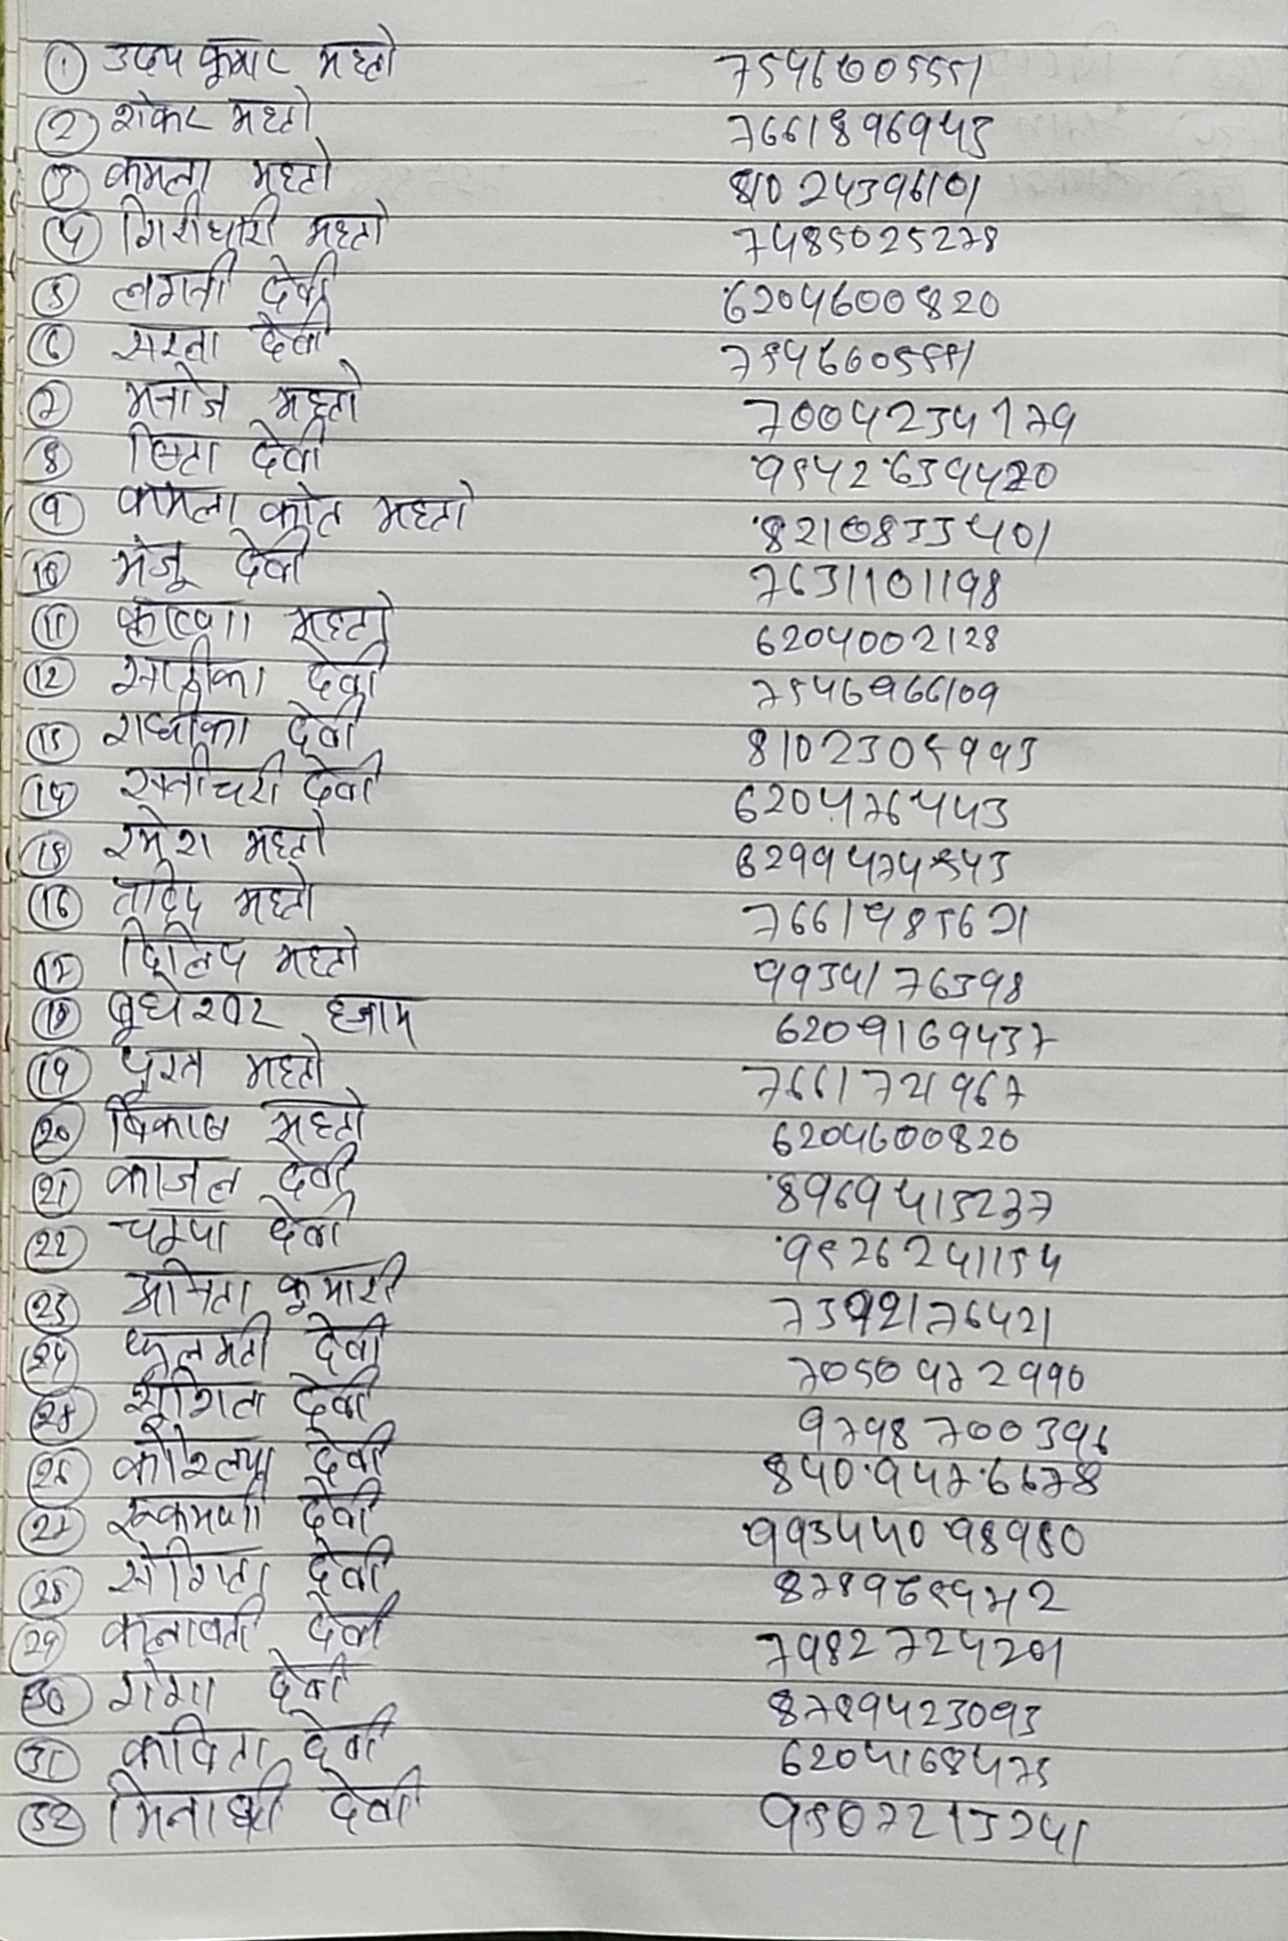 ① उदय कुमार महतो 75466005551
② शंकर महतो 7661896943
③ कमला महतो 81024396101
④ गिरीधारी महतो 7485025278
⑤ लगनी देवी 6204600820
⑥ सस्ता देवी 7546605551
⑦ मनोज महतो 7004234179
⑧ देवी 9542639420
⑨ कमला कांत महतो 8210833401
⑩ मंजू देवी 7631101198
⑪ महतो 6204002128
⑫ देवी 7546966109
⑬ राधीका देवी 8102305993
⑭ सनीचरी देवी 620476443
⑮ रमेश महतो 6299474543
⑯ महतो 7661985621
⑰ दिलिप महतो 9934176398
⑱ बूधेश्वर हजाम 6209169437
⑲ पूरन महतो 7661721967
⑳ बिकास महतो 6204600820
㉑ काजल देवी 8969415237
㉒ चम्पा देवी 9526241154
㉓ अनिता कुमारी 7392176421
㉔ फुलमती देवी 7050972990
㉕ सूगिता देवी 9798700396
㉖ कौशल्या देवी 840.947.6678
㉗ रूकमणी देवी 99344098980
㉘ संगिता देवी 8789659472
㉙ कलावती देवी 7982724201
㉚ गंगा देवी 8789423093
㉛ कविता देवी 6204168475
㉜ मिनाक्षी देवी 9507213241